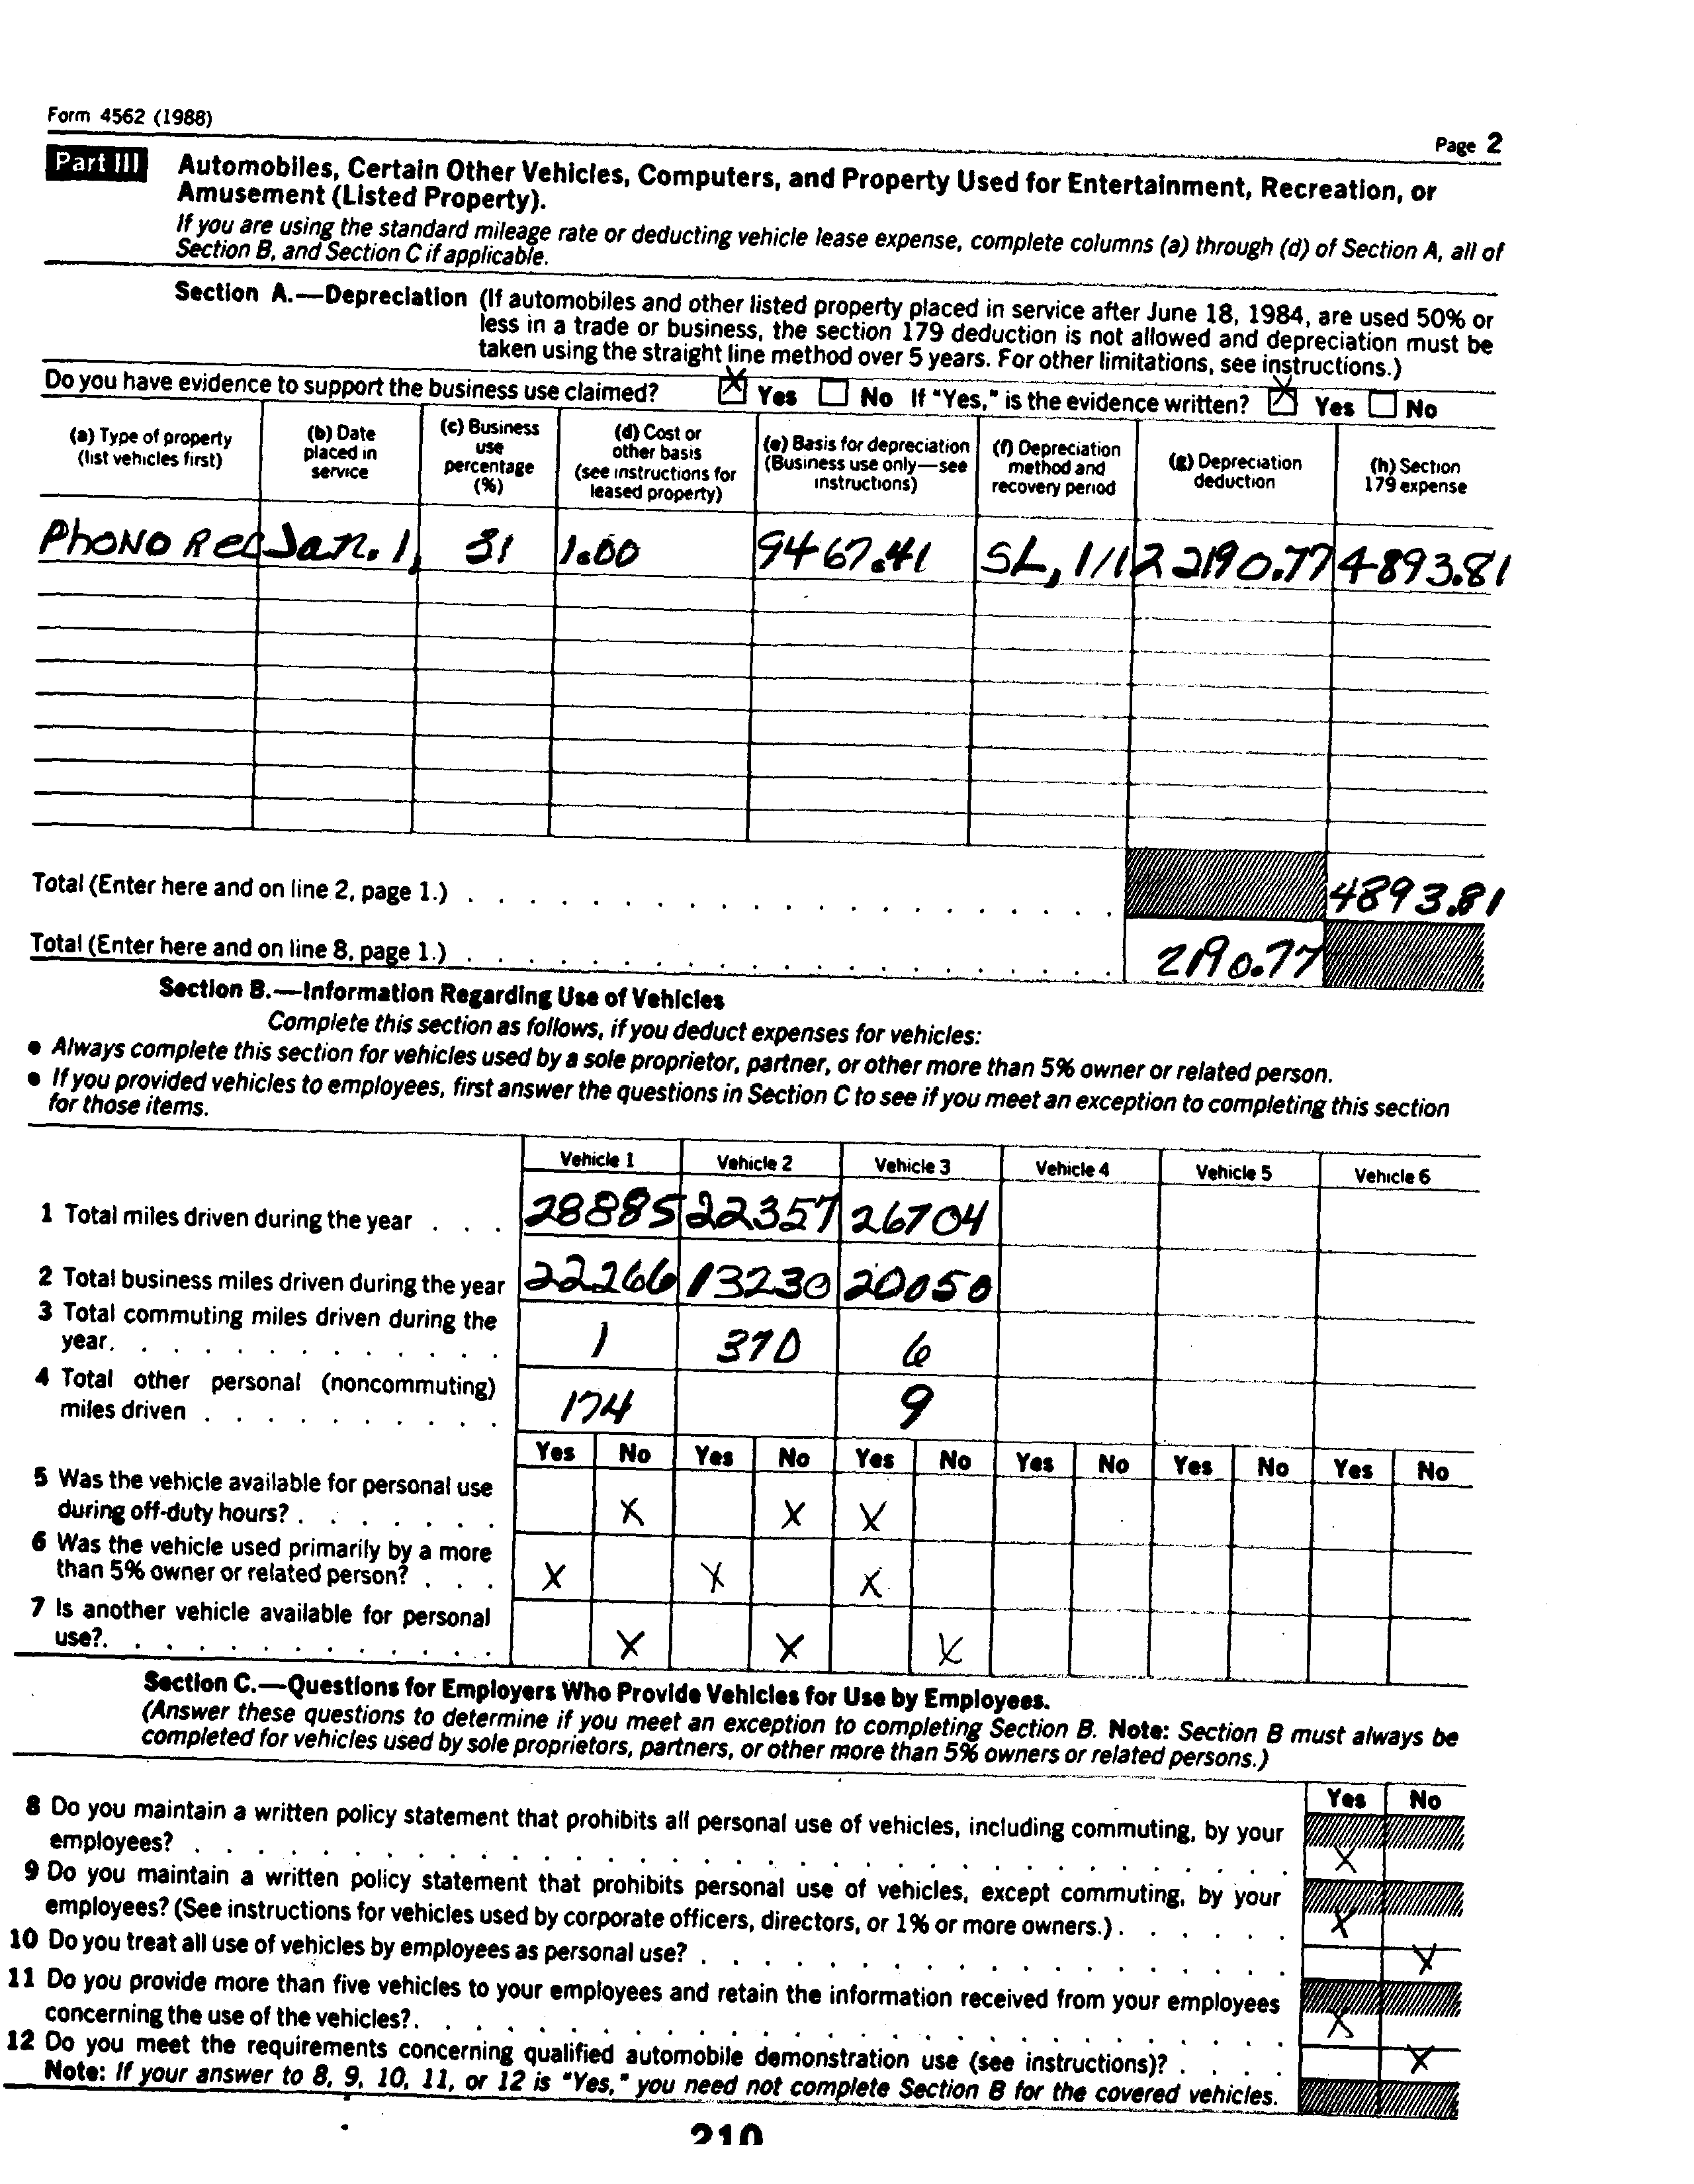 Form 4562 (1988)
Page 2
Part III Automobiles, Certain Other Vehicles, Computers, and Property Used for Entertainment, Recreation, or
Amusement (Listed Property).
If you are using the standard mileage rate or deducting vehicle lease expense, complete columns (a) through (d) of Section A, all of
Section B, and Section C if applicable.
Section A.—Depreciation (If automobiles and other listed property placed in service after June 18, 1984, are used 50% or
less in a trade or business, the section 179 deduction is not allowed and depreciation must be
taken using the straight line method over 5 years. For other limitations, see instructions.)
Do you have evidence to support the business use claimed? X Yes No If "Yes," is the evidence written? X Yes No
(a) Type of property
(list vehicles first)
(b) Date
placed in
service
(c) Business
use
percentage
(%)
(d) Cost or
other basis
(see instructions for
leased property)
(e) Basis for depreciation
(Business use only—see
instructions)
(f) Depreciation
method and
recovery period
(g) Depreciation
deduction
(h) Section
179 expense
Phono Rec Jan. 1, 31 1.00 9467.41 SL, 1/12 2190.77 4893.81
Total (Enter here and on line 2, page 1.) 4893.81
Total (Enter here and on line 8, page 1.) 2190.77
Section B.—Information Regarding Use of Vehicles
Complete this section as follows, if you deduct expenses for vehicles:
● Always complete this section for vehicles used by a sole proprietor, partner, or other more than 5% owner or related person.
● If you provided vehicles to employees, first answer the questions in Section C to see if you meet an exception to completing this section
for those items.
Vehicle 1 Vehicle 2 Vehicle 3 Vehicle 4 Vehicle 5 Vehicle 6
1 Total miles driven during the year . . . 28885 22357 26704
2 Total business miles driven during the year 22266 13230 20050
3 Total commuting miles driven during the
year. . . . . . . . . . . . . 1 370 6
4 Total other personal (noncommuting)
miles driven . . . . . . . . . . 174 9
Yes No Yes No Yes No Yes No Yes No Yes No
5 Was the vehicle available for personal use
during off-duty hours? . . . . . . . X X X
6 Was the vehicle used primarily by a more
than 5% owner or related person? . . . X X X
7 Is another vehicle available for personal
use?. . . . . . . . . . . . . X X X
Section C.—Questions for Employers Who Provide Vehicles for Use by Employees.
(Answer these questions to determine if you meet an exception to completing Section B. Note: Section B must always be
completed for vehicles used by sole proprietors, partners, or other more than 5% owners or related persons.)
Yes No
8 Do you maintain a written policy statement that prohibits all personal use of vehicles, including commuting, by your
employees? X
9 Do you maintain a written policy statement that prohibits personal use of vehicles, except commuting, by your
employees? (See instructions for vehicles used by corporate officers, directors, or 1% or more owners.) . . . . . . X
10 Do you treat all use of vehicles by employees as personal use? X
11 Do you provide more than five vehicles to your employees and retain the information received from your employees
concerning the use of the vehicles?. X
12 Do you meet the requirements concerning qualified automobile demonstration use (see instructions)? . . . . X
Note: If your answer to 8, 9, 10, 11, or 12 is "Yes," you need not complete Section B for the covered vehicles.
210